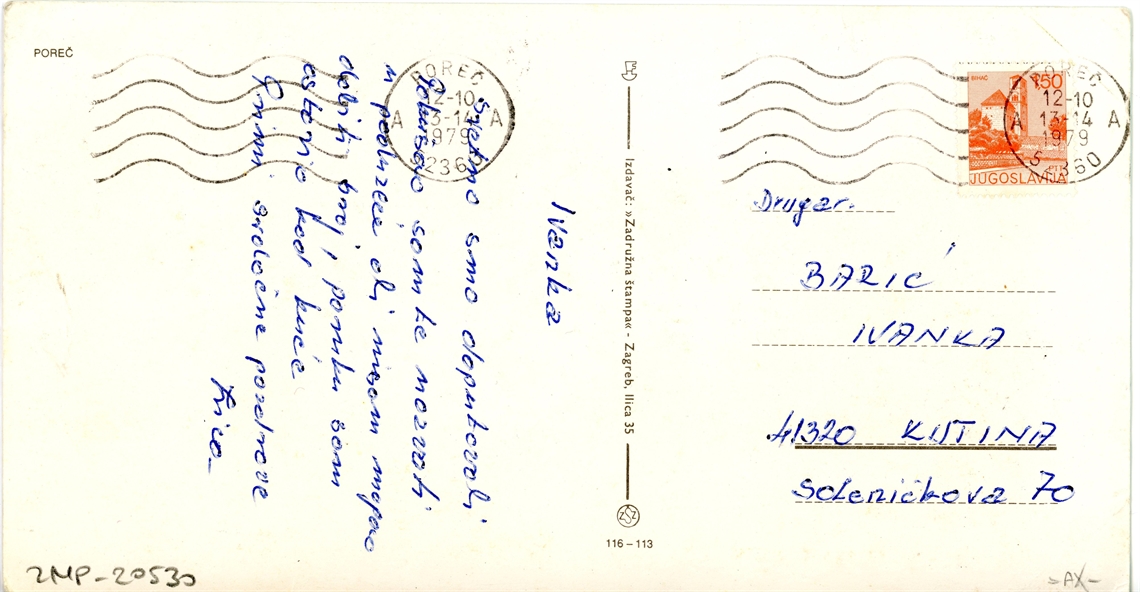 POREČ
Ivanka
Sretno smo doputovali
Pokušao sam te nazvati
u poduzeće ali nisam mogao
dobiti broj, poruku sam
ostavio kod kuće
Primi srdačne pozdrave
POREČ
12-10
13-14
1979
A A
52360
Izdavač: »Zadružna štampa« - Zagreb, Ilica 35
ZŠZ
116 – 113
BIHAĆ
1,50
JUGOSLAVIJA
POREČ
12-10
13-14
1979
A A
Drugar.
BARIĆ
IVANKA
41320 KUTINA
70
ZMP-20530